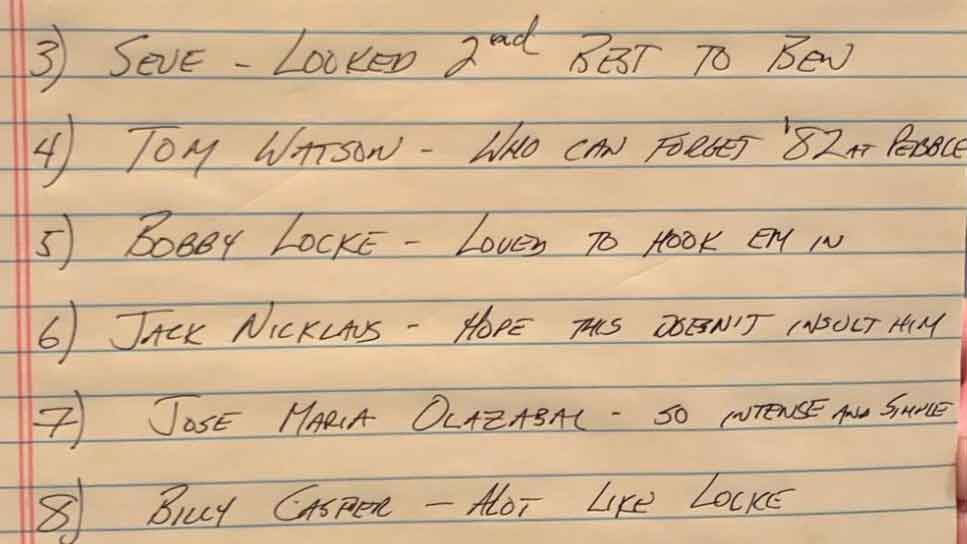 3) SEVE - LOOKED 2nd BEST TO BEN
4) TOM WATSON - WHO CAN FORGET '82 AT PEBBLE
5) BOBBY LOCKE - LOVED TO HOOK EM IN
6) JACK NICKLAUS - HOPE THIS DOESN'T INSULT HIM
7) JOSE MARIA OLAZABAL - SO INTENSE AND SIMPLE
8) BILLY CASPER - ALOT LIKE LOCKE